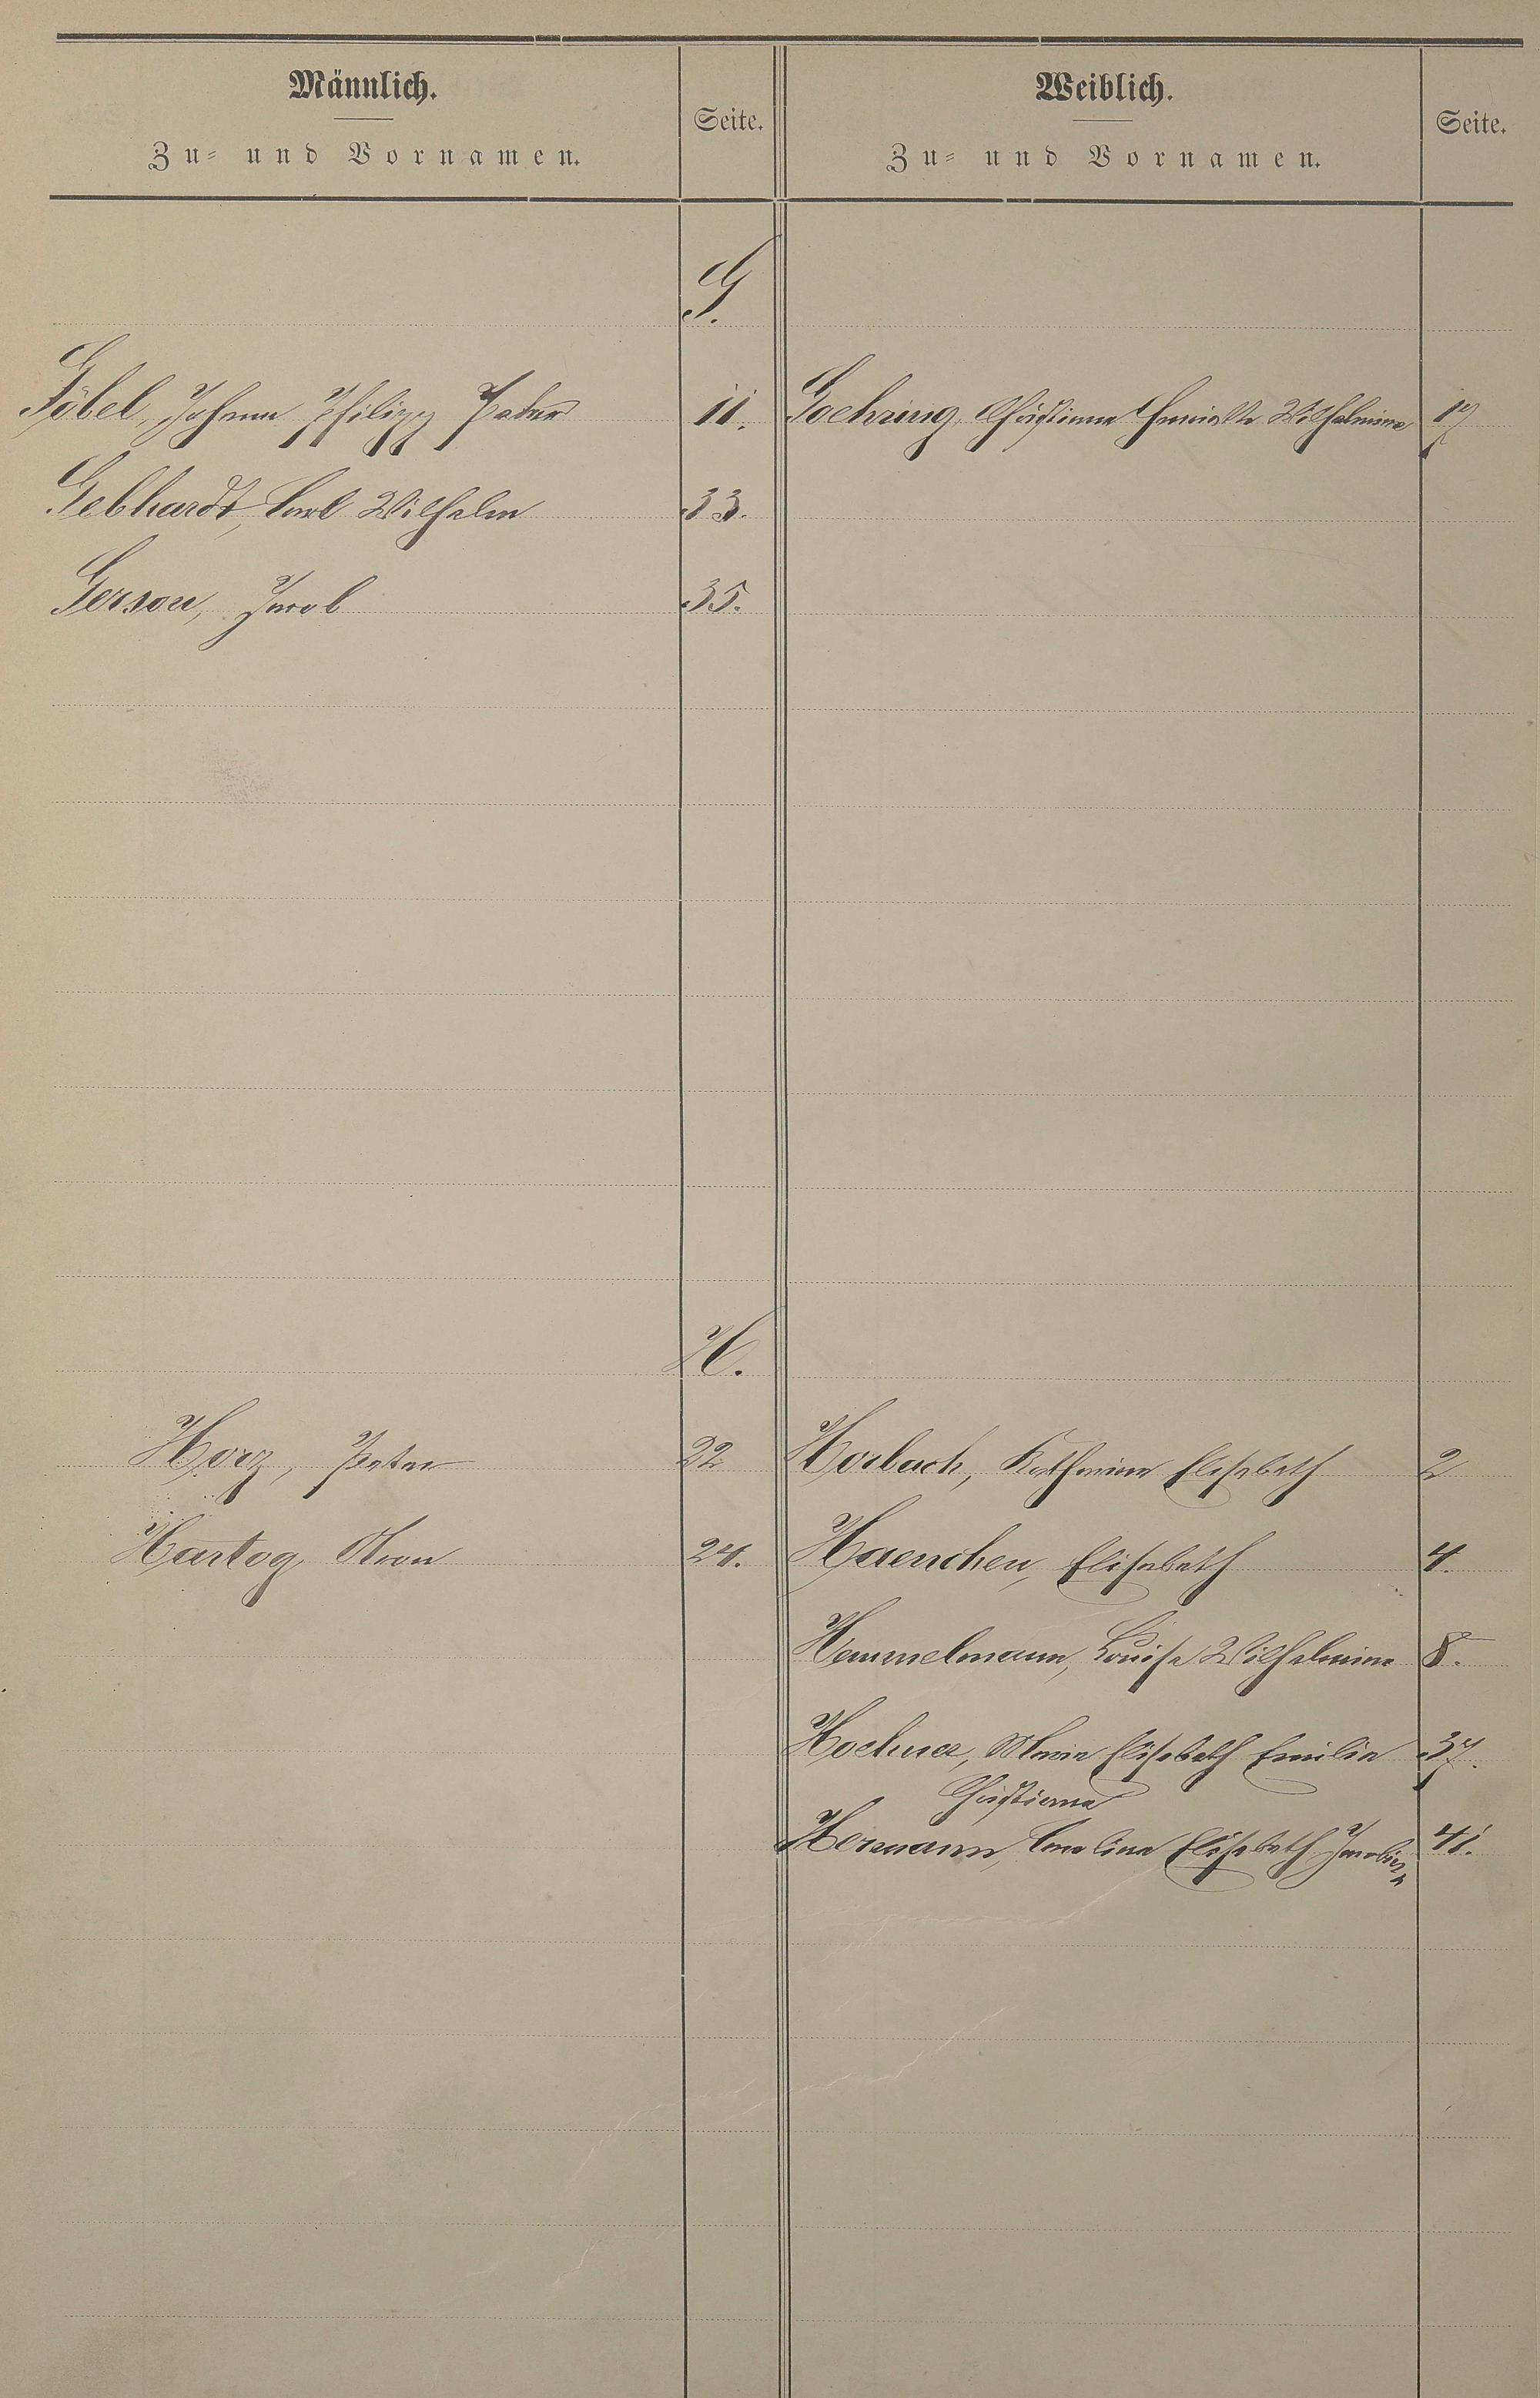 Männlich.
Zu= und Vornamen.
Seite.
Weiblich.
Zu= und Vornamen.
Seite.
G.
Göbel, Johann Philipp Peter 11. Goehring, Christiane Henriette Wilhelmine 17
Gebhardt, Carl Wilhelm 33.
Gerson, Jacob 35.
H.
Horz, Peter 22 Horbach, Katharina Elisabeth 2
Hartog Aron 24. Haenchen, Elisabeth 4.
Hemmelmann, Louise Wilhelmine 8.
Hoehner, Maria Elisabeth Emilie 37.
Christiane
Hermann, Caroline Elisabeth 41.